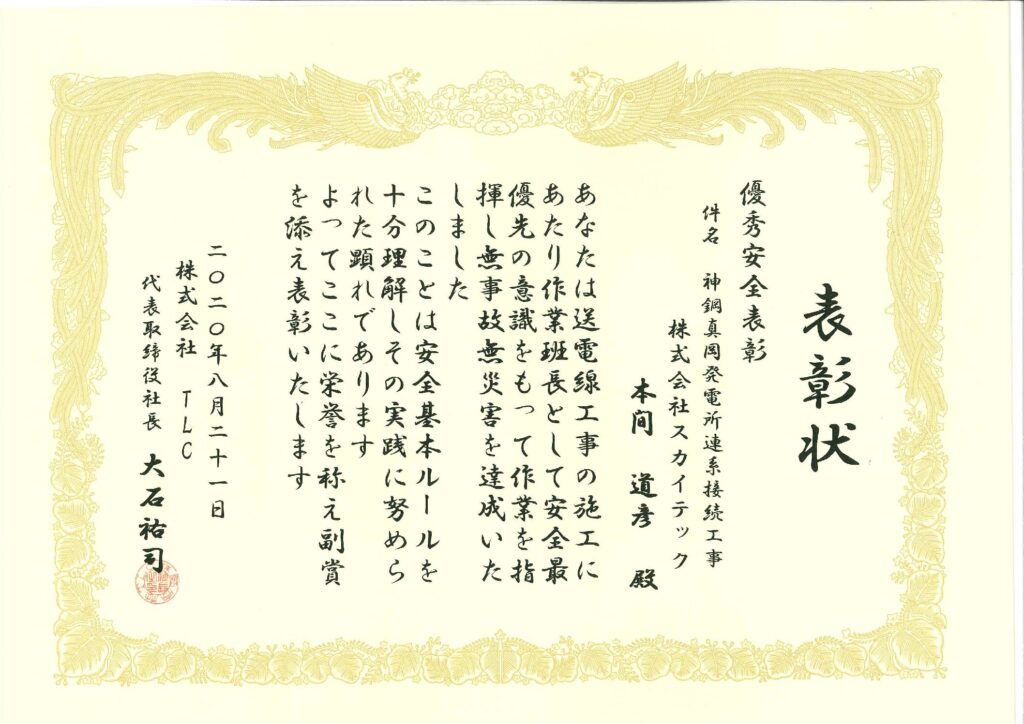 表彰状
優秀安全表彰
件名 神鋼真岡発電所連系接続工事
株式会社スカイテック
本間 道彦 殿
あなたは送電線工事の施工に
あたり作業班長として安全最
優先の意識をもって作業を指
揮し無事故無災害を達成いた
しました
このことは安全基本ルールを
十分理解しその実践に努めら
れた顕れであります
よってここに栄誉を称え副賞
を添え表彰いたします
二〇二〇年八月二十一日
株式会社 TLC
代表取締役社長 大石祐司